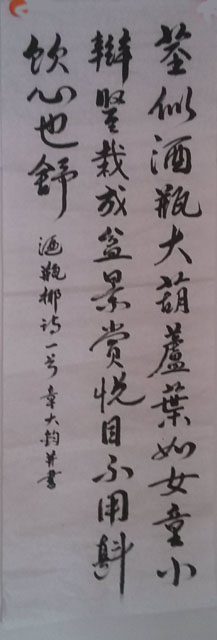 茎似酒瓶大葫蘆葉如女童小
辮竪栽成盆景賞悦目不用斟
飲心也舒
酒瓶椰诗一首 章大鈞并書